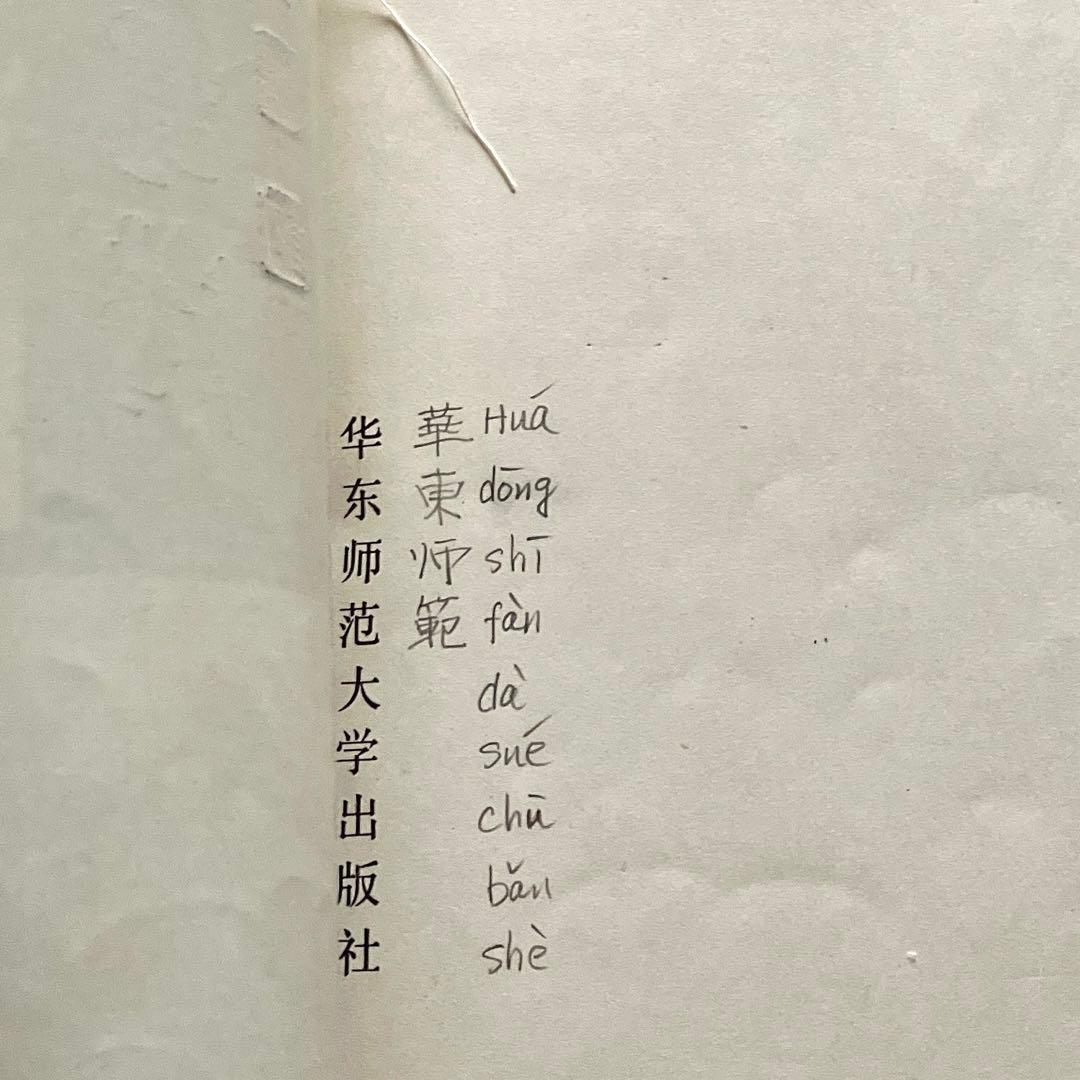 华 華 Huá
东 東 dōng
师 师 shī
范 範 fàn
大 dà
学 sué
出 chū
版 bǎn
社 shè